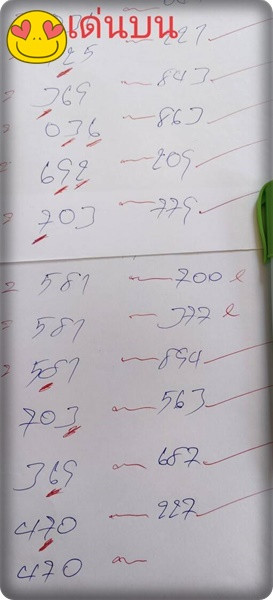 เด่นบน
25 227
369 843
036 863
692 209
703 779
581 700 ℓ
581 377 ℓ
581 894
703 563
369 687
470 227
470